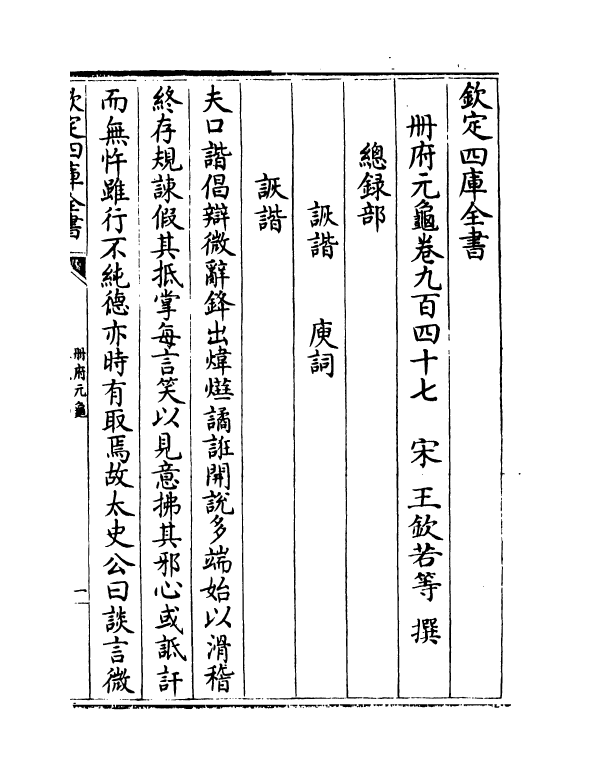 欽定四庫全書
冊府元龜卷九百四十七　宋　王欽若等　撰
總録部
詼諧　庾詞
詼諧
夫口諧倡辯微辭鋒出煒燁譎誑開說多端始以滑稽
終存規諫假其抵掌每言笑以見意拂其邪心或詆訐
而無忤雖行不純德亦時有取焉故太史公曰談言微
欽定四庫全書
冊府元龜
一